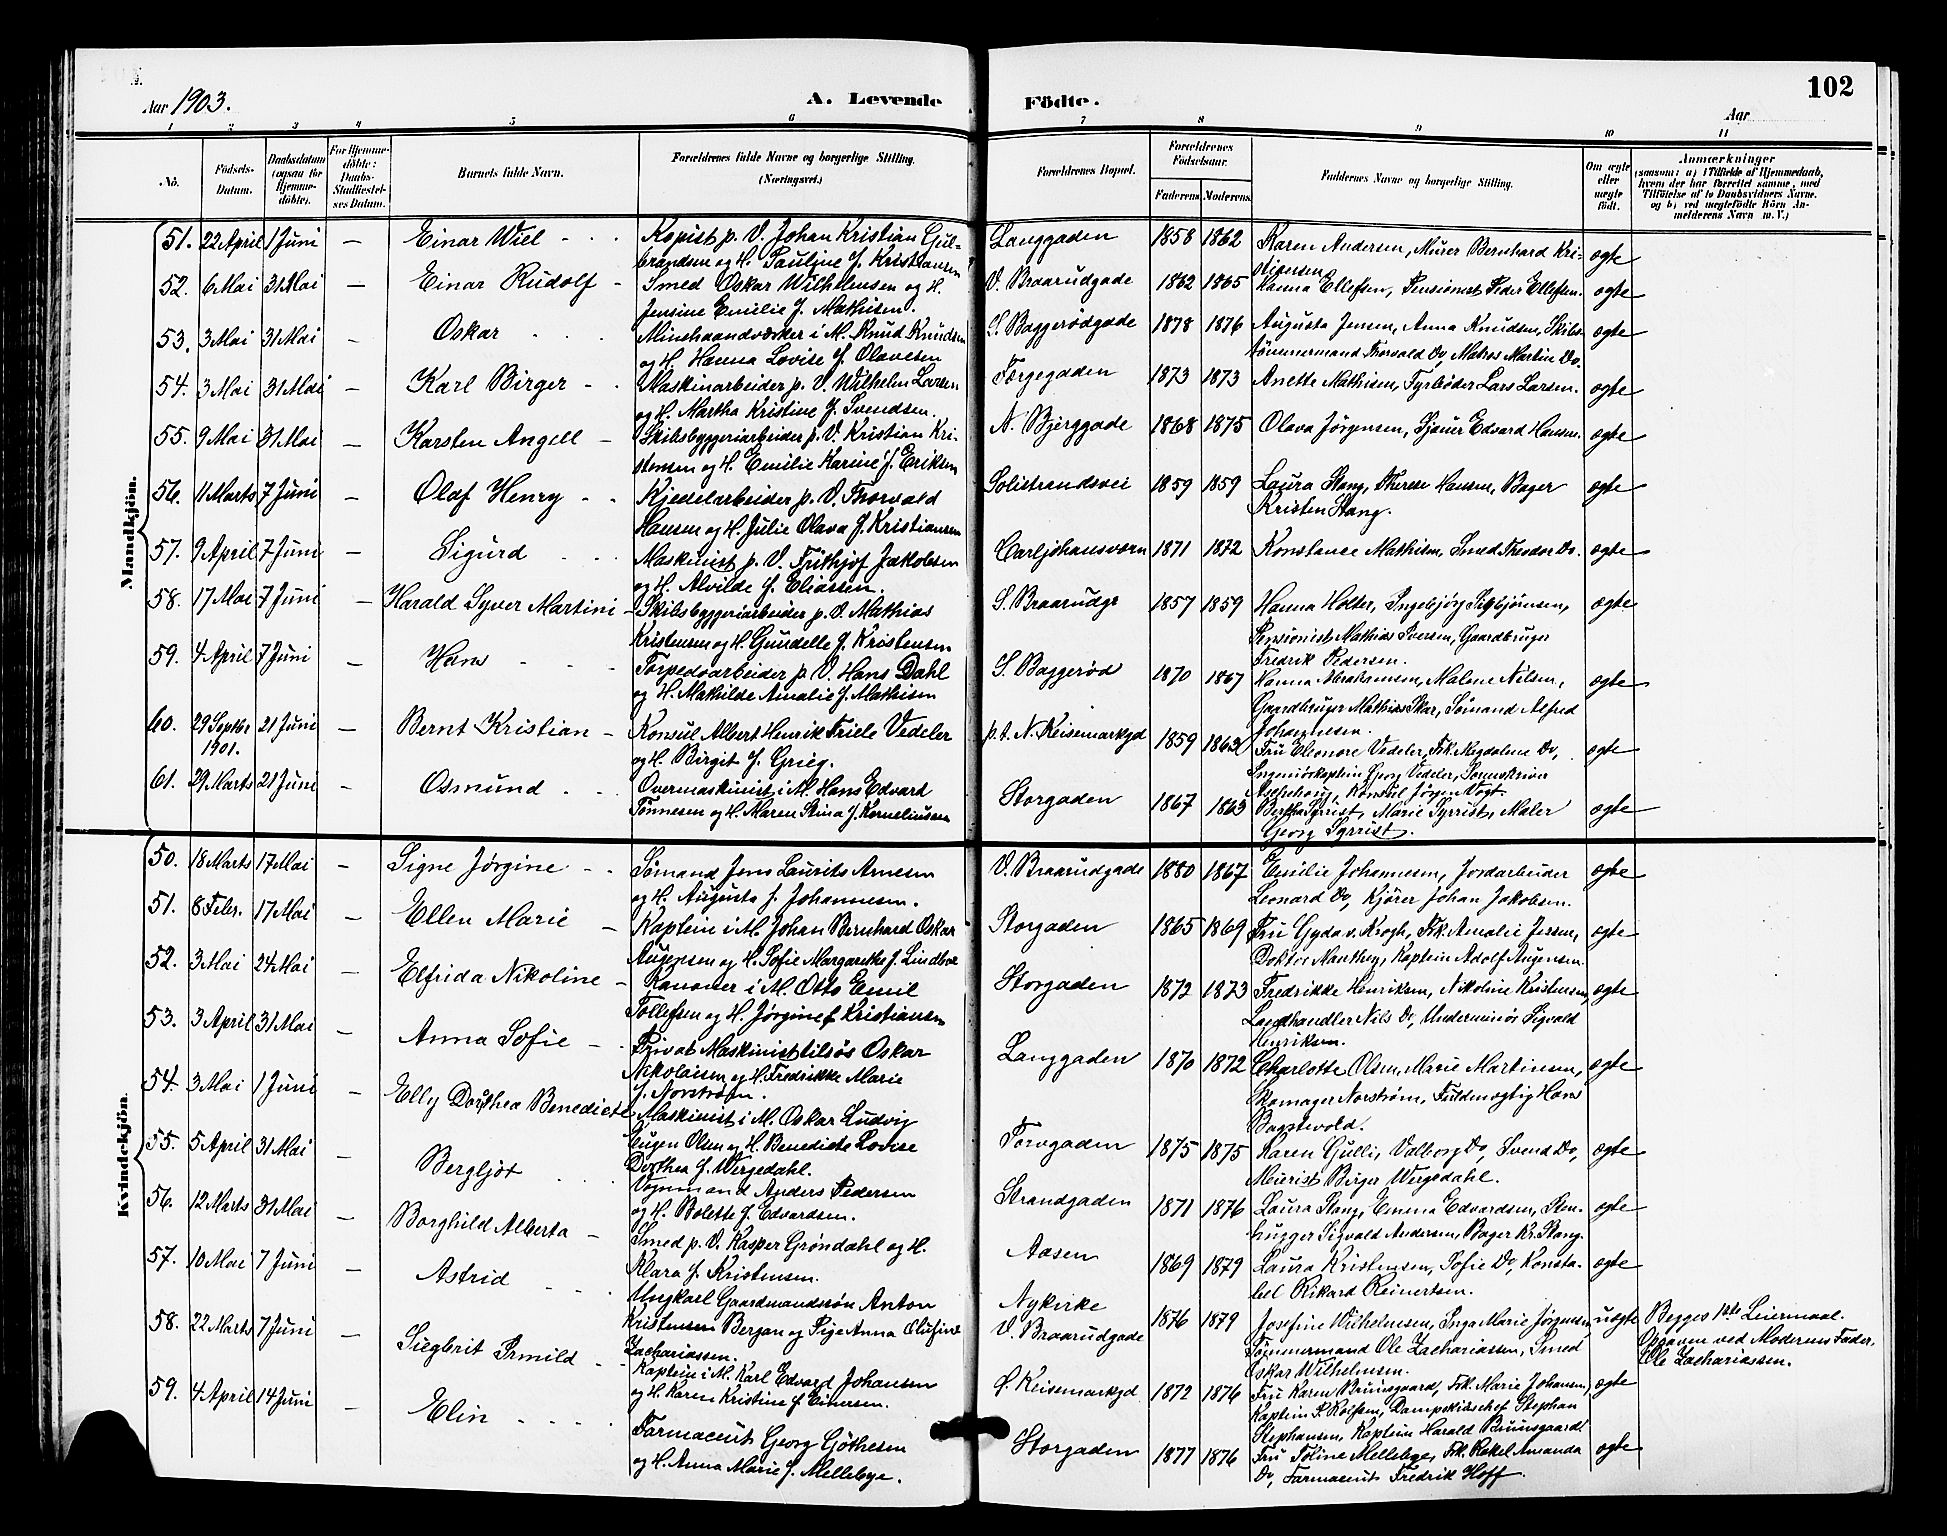 102
Aar 1903.
A. Levende Födte.
Aar
1 2 3 4 5 6 7 8 9 10 11
No.
Födsels-Datum.
Daabsdatum (ogsaa for Hjemmedöbte).
For Hjemmedöbte: Daabs-Stadfæstelses Datum.
Barnets fulde Navn.
Forældrenes fulde Navne og borgerlige Stilling. (Næringsvei.)
Forældrenes Bopæl.
Forældrenes Födselsaar.
Faderens Moderens
Faddernes Navne og borgerlige Stilling.
Om ægte eller uægte født.
Anmærkninger
(saasom: a) i Tilfælde af Hjemmedaab,
hvem der har forrettet samme, med
Tilföielse af to Daabsvidners Navne.
og b) ved uægtefödte Börn An-
melderens Navn m. V.)
Mandkjön.
51. 22 April 1 Juni — Einar Wiel Kopist p. V. Johan Kristian Gul- Langgaden 1858 1862 Karen Andersen, Murer Bernhard Kri- ægte
brandsen og H. Pauline f. Kristiansen stiansen
52. 6 Mai 31 Mai — Einar Rudolf Smed Oskar Wilhelmsen og H. V. Braarudgade 1862 1865 Hanna Ellefsen, Pensionist Peder Ellefsen. ægte
Jensine Emilie f. Mathisen.
53. 3 Mai 31 Mai — Oskar Minehaandværker i M. Knud Knudsen S. Baggerødgade 1878 1876 Augusta Jensen, Anna Knudsen, Skibs- ægte
og H. Hanna Lovise f. Olavesen tömmermand Thorvald Do, Matros Martin Do.
54. 3 Mai 31 Mai — Karl Birger Maskinarbeider p. V. Wilhelm Larsen Torgegaden 1873 1873 Anette Mathisen, Fyrbøder Lars Larsen. ægte
og H. Martha Kristine f. Svendsen.
55. 9 Mai 31 Mai — Karsten Angell Skibsbyggeriarbeider p. V. Kristian Kri- N. Bjerggade 1868 1875 Olava Jørgensen, Sjauer Edvard Hansen. ægte
stensen og H. Emilie Karine f. Eriksen
56. 11 Marts 7 Juni — Olaf Henry Kjedelarbeider p. V. Thorvald Solistrandsvei 1859 1859 Laura Stang, Therese Hansen, Bager ægte
Hansen og H. Julie Olava f. Kristiansen Kristen Stang.
57. 9 April 7 Juni — Sigurd Maskinist p. V. Frithjof Jakobsen Carljohansværn 1871 1872 Konstance Mathisen, Smed Theodor Do. ægte
og H. Alvilde f. Eliassen.
58. 17 Mai 7 Juni — Harald Syver Martini Skibsbyggeriarbeider p. V. Mathias S. Braarudgr 1857 1859 Hanna Holter, Ingebjørg Sigbjørnsen, ægte
Kristensen og H. Gundelle f. Kristensen Pensionist Mathias Iversen, Gaardbruger
Fredrik Pedersen.
59. 4 April 7 Juni — Hans Torpedoarbeider p. V. Hans Dahl S. Baggerød 1870 1867 Hanna Abrahamsen, Malene Nilsen, ægte
og H. Mathilde Amalie f. Mathisen Gaardbruger Mathias Skar, Sømand Alfred
Johannesen.
60. 29 Septbr 1901. 21 Juni — Bernt Kristian Konsul Albert Henrik Friele Vedeler p.t. N. Keisemarkgd 1859 1862 Fru Eleonore Vedeler, Frk. Magdalene Do, ægte
og H. Birgit f. Grieg. Ingeniørkaptein Georg Vedeler, Sorenskriver
Konsul Jørgen Vogt.
61. 29 Marts 21 Juni — Osmund Overmaskinist i M. Hans Edvard Storgaden 1867 1863 Bertha Syrrist, Marie Syrrist, Maler ægte
Tønnesen og H. Maren Stina f. Korneliussen Georg Syrrist.
Kvindekjön.
50. 18 Marts 17 Mai — Signe Jørgine Sømand Jens Laurits Arnesen V. Braarudgade 1880 1867 Emilie Johannesen, Jordarbeider ægte
og H. Augusta f. Johannesen. Leonard Do, Kjører Johan Jakobsen.
51. 8 Febr. 17 Mai — Ellen Marie Kaptein i M. Johan Bernhard Oskar Storgaden 1865 1869 Fru Gyda v. Krogh, Frk. Amalie Jessen, ægte
Augensen og H. Sofie Margarethe f. Lindboe Doktor Manthey, Kaptein Adolf Augensen.
52. 3 Mai 24 Mai — Elfrida Nikoline Kanoner i M. Otto Emil Storgaden 1872 1873 Fredrikke Henriksen, Nikoline Kristensen, ægte
Tollefsen og H. Jørgine f. Kristiansen Landhandler Nils Do, Underminör Sigvald
Henriksen.
53. 3 April 31 Mai — Anna Sofie Privat Maskinist tilsös Oskar Langgaden 1870 1872 Charlotte Olsen, Marie Martinsen, ægte
Nikolaisen og H. Fredrikke Marie Skomager Norstrøm, Fuldmægtig Hans
f. Norstrøm. Bagstevold.
54. 3 Mai 1 Juni — Elly Dorthea Benedicte Maskinist i M. Oskar Ludvig Torvgaden 1875 1875 Karen Gulli, Valborg Do, Svend Do, ægte
Eugen Olsen og H. Benedicte Lovise Meierist Birger Wergedahl.
Dorthea f. Wergedahl.
55. 5 April 31 Mai — Bergljot Vognmand Anders Pedersen Strandgaden 1871 1876 Laura Stang, Emma Edvardsen, Sten- ægte
og H. Bolette f. Edvardsen. hugger Sigvald Andersen, Bager Kr. Stang.
56. 12 Marts 31 Mai — Borghild Alberta Smed p. V. Kasper Grøndahl og H. Aasen 1869 1879 Laura Kristensen, Sofie Do, Konsta- ægte
Klara f. Kristensen. bel Rikard Reinertsen.
57. 10 Mai 7 Juni — Astrid Ungkarl Gaardmandssön Anton Nykirke 1876 1879 Josefine Wilhelmsen, Inga Marie Jørgensen, uægte Begges 1ste Leiermaal.
Kristensen Bergan og Pige Anna Olufine V. Braarudgade Tømmermand Ole Zachariassen, Smed Opgaven ved Moderens Fader,
Zachariassen. Oskar Wilhelmsen. Ole Zachariassen.
58. 22 Marts 7 Juni — Siegbrit Irmild Kaptein i M. Karl Edvard Johansen S. Keisemarkgd 1872 1876 Fru Karen Bruusgaard, Frk. Marie Johansen, ægte
og H. Karen Kristine f. Einersen. Kaptein P. Rolfsen, Dampskibschef Stephan
Stephansen, Kaptein Harald Bruusgaard
59. 4 April 14 Juni — Elin Farmaceut Georg Göthesen Storgaden 1877 1876 Fru Toline Mellebye, Frk. Rakel Amanda ægte
og H. Anna Marie f. Mellebye. Do, Farmaceut Fredrik Hoff.